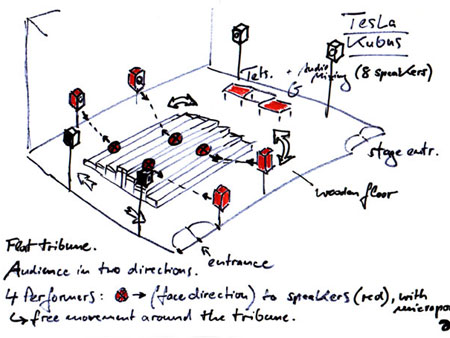 Tesla
Kubus
Tets. + Audio
Mixing (8 speakers)
G
stage entr.
wooden floor
entrance
Flat tribune.
Audience in two directions.
4 Performers: → (face direction) to speakers (red), with
↳ free movement around the tribune.